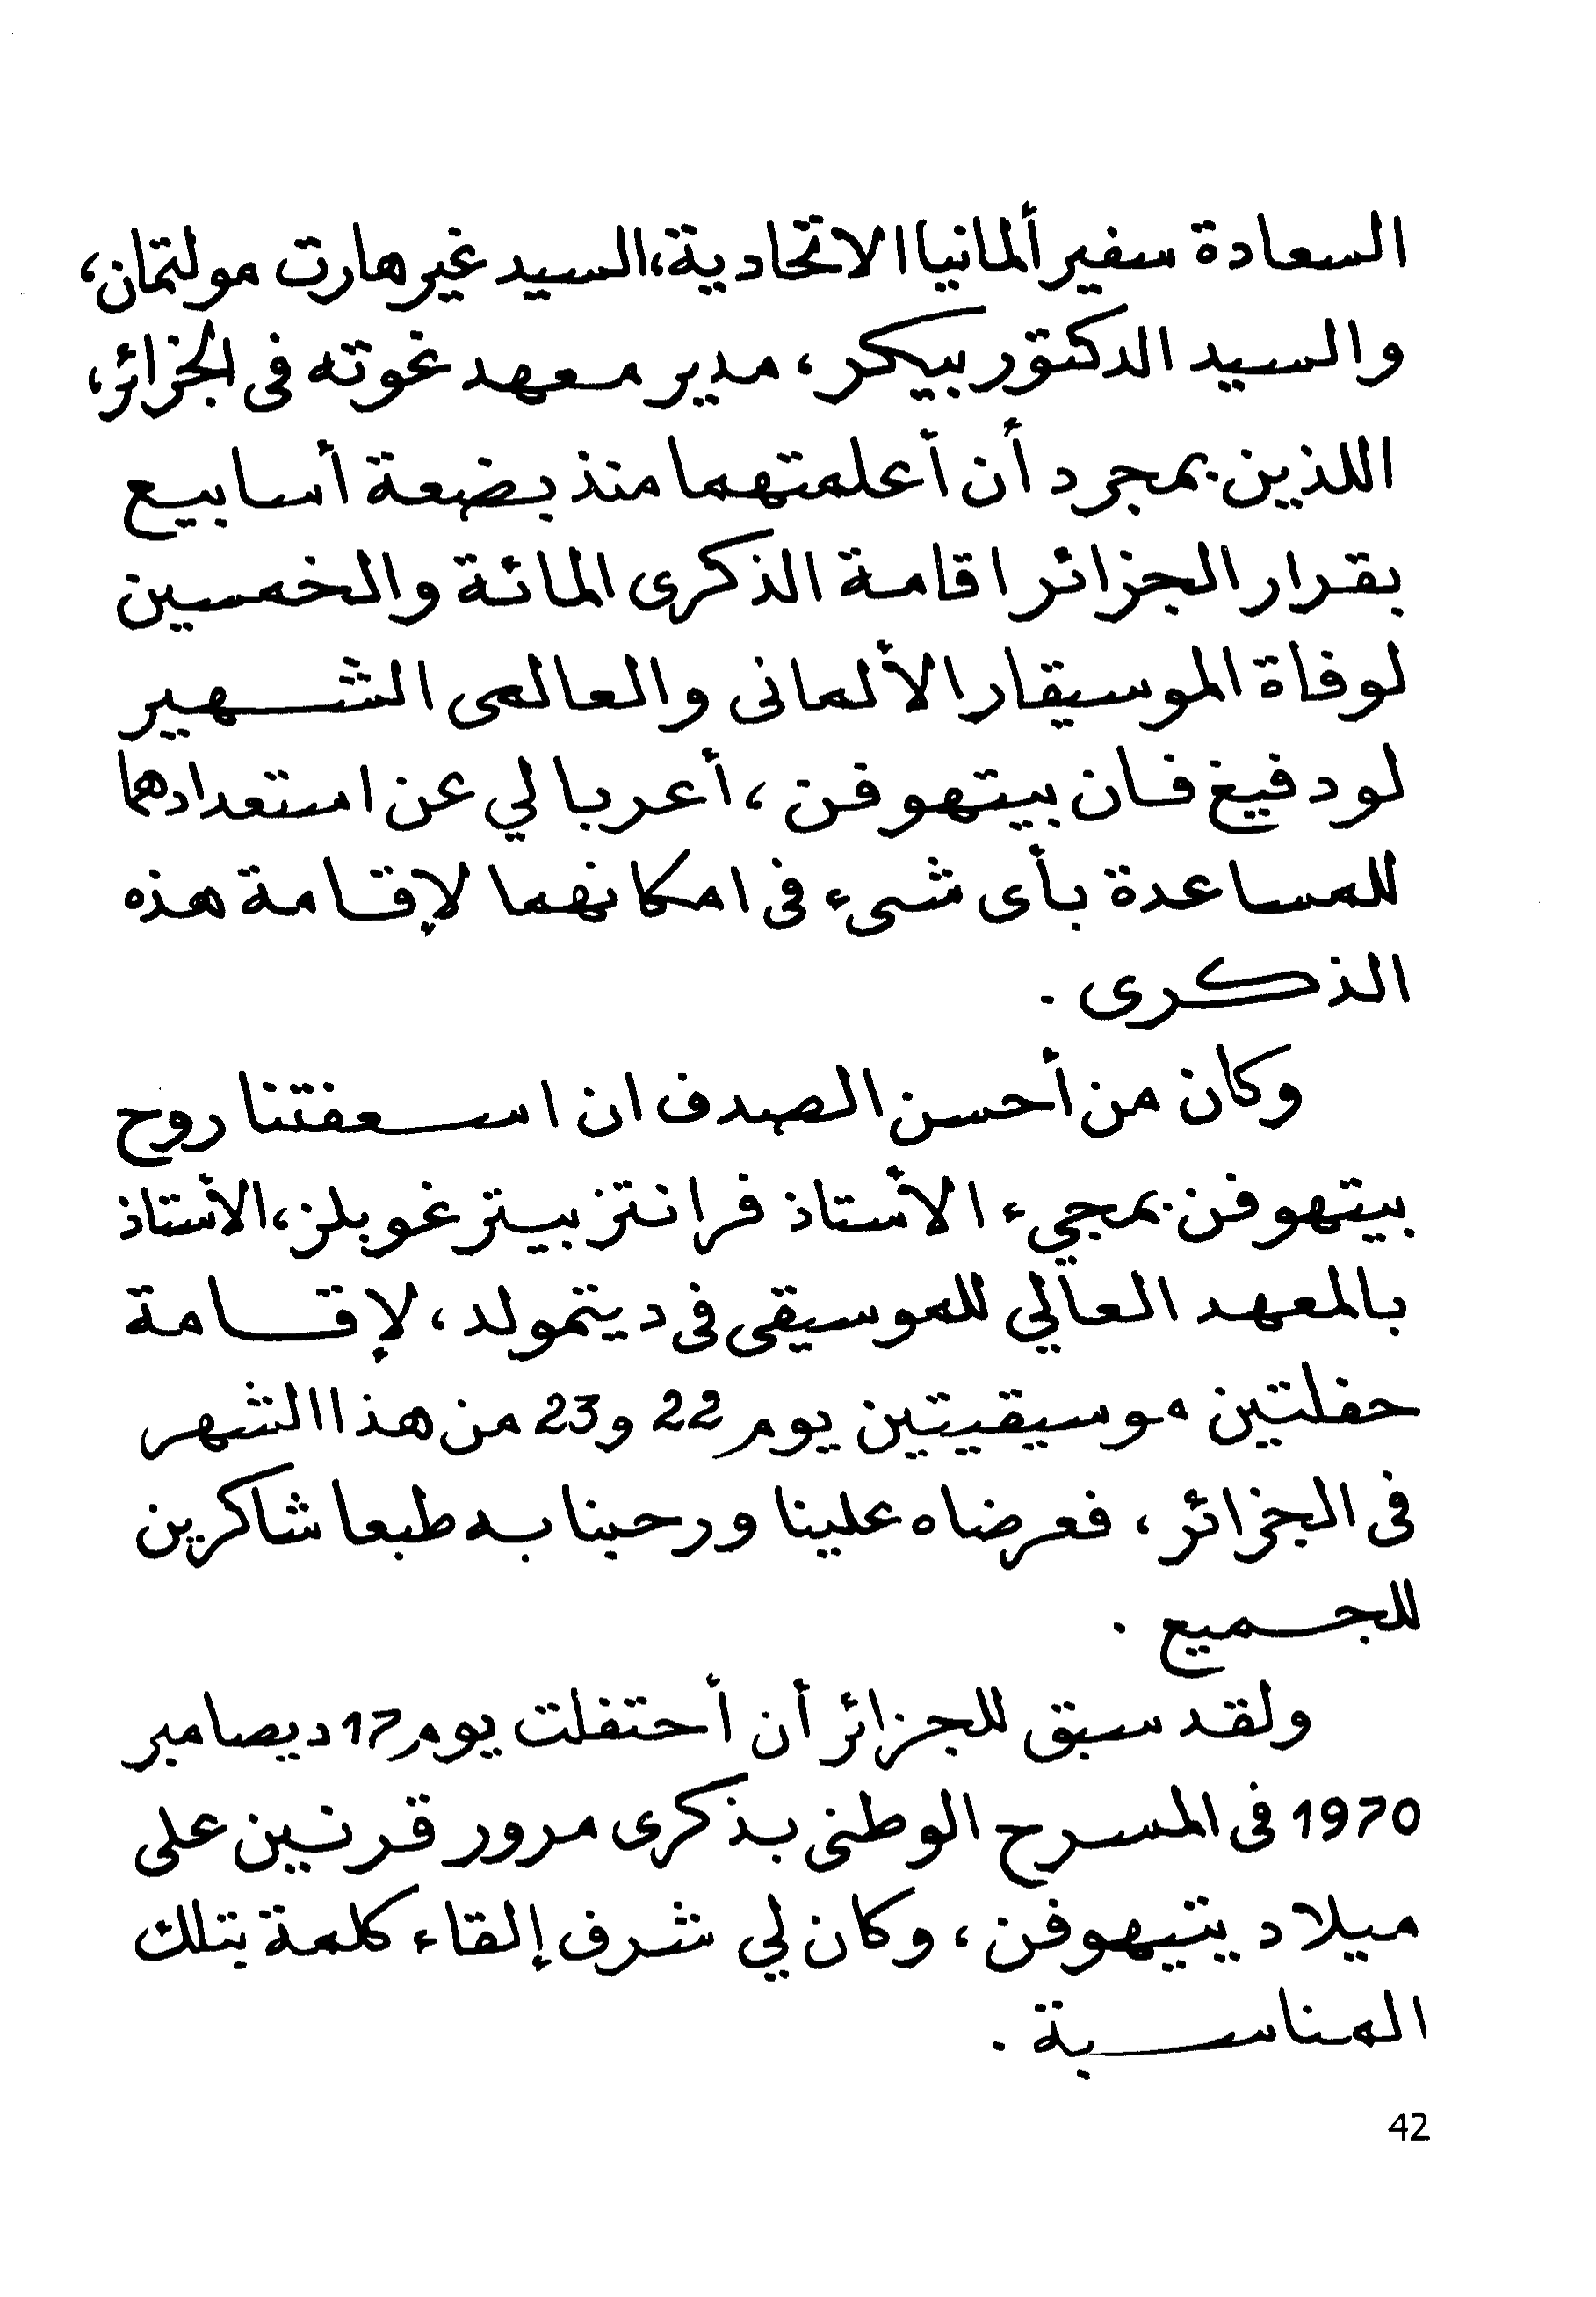 السعادة سفير ألمانيا الاتحادية، السيد غيرهارت مولتمان،
والسيد الدكتور بيكر، مدير معهد غوته فى الجزائر،
اللذين بمجرد أن أعلمتهما منذ بضعة أسابيع
بقرار الجزائر اقامة الذكرى المائة والخمسين
لوفاة الموسيقار الألمانى والعالمى الشهير
لودفيغ فان بيتهوفن، أعربا لي عن استعدادهما
للمساعدة بأى شىء فى امكانهما لإقامة هذه
الذكرى .
وكان من أحسن الصدف ان اسعفتنا روح
بيتهوفن بمجيء الأستاذ فرانتز بيتر غوبلز، الأستاذ
بالمعهد العالي للموسيقى فى ديتمولد، لإقامة
حفلتين موسيقيتين يوم 22 و23 من هذا الشهر
فى الجزائر، فعرضاه علينا ورحبنا به طبعا شاكرين
للجميع .
ولقد سبق للجزائر أن أحتفلت يوم 17 ديصامبر
1970 فى المسرح الوطنى بذكرى مرور قرنين على
ميلاد يتيهوفن، وكان لي شرف إلقاء كلمة بتلك
المناسبة .
42